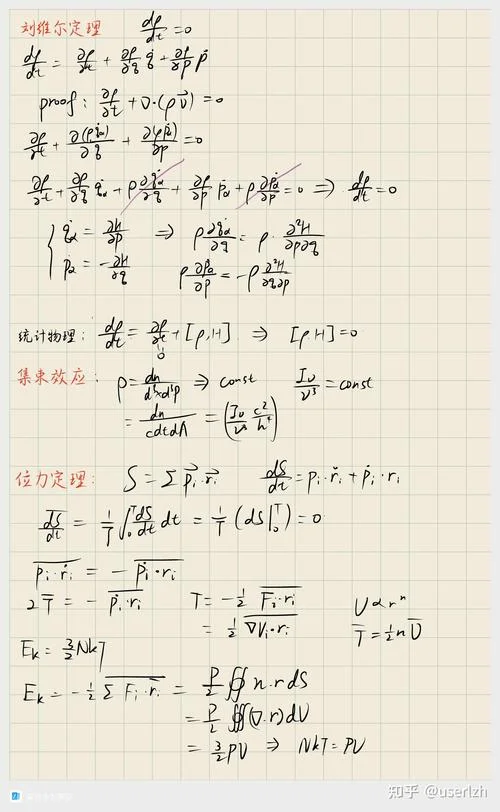 刘维尔定理 dρ/dt = 0
dρ/dt = ∂ρ/∂t + ∂ρ/∂q q̇ + ∂ρ/∂p ṗ
proof: ∂ρ/∂t + ∇·(ρv⃗) = 0
∂ρ/∂t + ∂(ρq̇α)/∂q + ∂(ρṗα)/∂p = 0
∂ρ/∂t + ∂ρ/∂q q̇α + ρ ∂q̇α/∂q + ∂ρ/∂p ṗα + ρ ∂ṗα/∂p = 0 ⇒ dρ/dt = 0
{ q̇α = ∂H/∂p ⇒ ρ ∂q̇α/∂q = ρ · ∂²H/∂p∂q
ṗα = -∂H/∂q ρ ∂ṗα/∂p = -ρ ∂²H/∂q∂p
统计物理: dρ/dt = ∂ρ/∂t + [ρ,H] ⇒ [ρ,H] = 0
0
集束效应: ρ = dn/d³xd³p ⇒ const Iν/ν³ = const
= dn/cdtdA = (Iν/ν³ c²/h⁴)
位力定理: S = Σ p⃗i·r⃗i dS/dt = pi·ṙi + ṗi·ri
dS/dt = 1/T ∫₀ᵀ dS/dt dt = 1/T (dS|₀ᵀ) = 0
pi·ṙi = - ṗi·ri
2T = - ṗi·ri T = -½ Fi·ri U ∝ rⁿ
= ½ ∇Vi·ri T = ½ n U
Ek = 3/2 NkT
Ek = -½ Σ Fi·ri = P/2 ∯ n·r dS
= P/2 ∰ (∇·r) dV
= 3/2 PV ⇒ NkT = PV
知乎 @userlzh